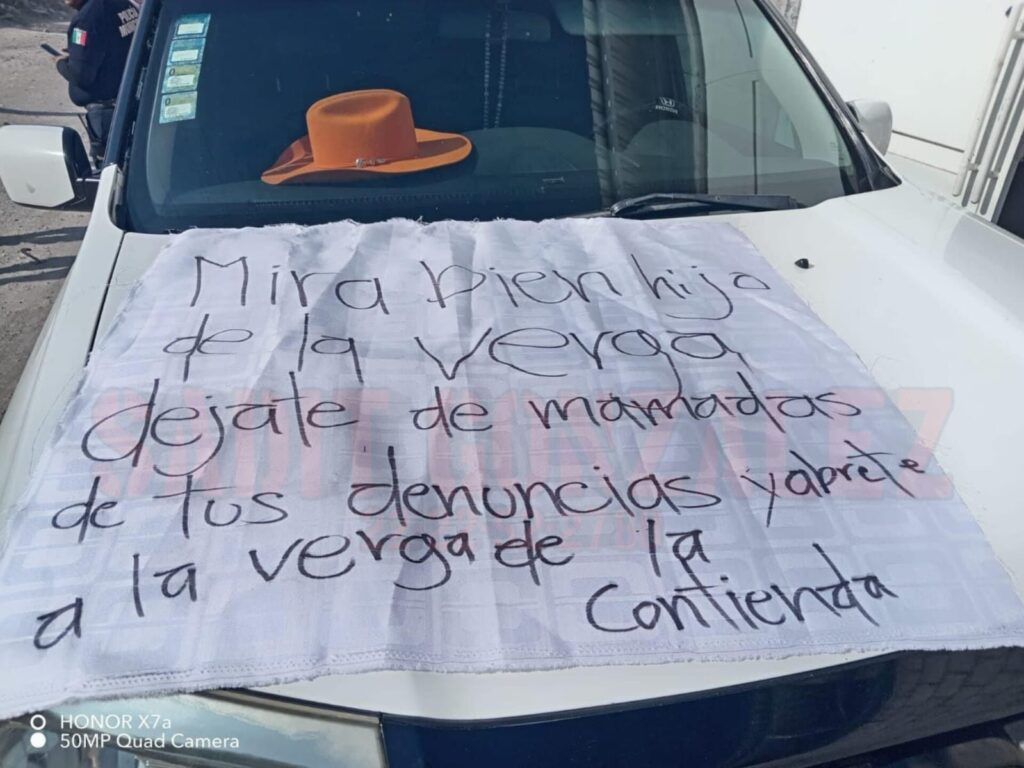 POLICIA
Mira bien hijo
de la verga
dejate de mamadas
de tus denuncias yabrete
a la verga de la
contienda
SAUL GONZALEZ
HONOR X7a
50MP Quad Camera